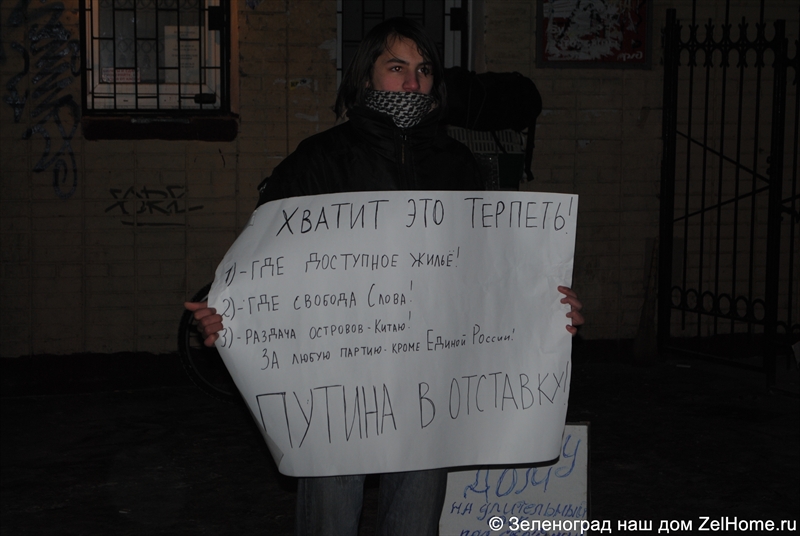 ХВАТИТ ЭТО ТЕРПЕТЬ!
1)-ГДЕ ДОСТУПНОЕ ЖИЛЬЁ!
2)-ГДЕ СВОБОДА СЛОВА!
3)-РАЗДАЧА ОСТРОВОВ-КИТАЮ!
ЗА ЛЮБУЮ ПАРТИЮ-КРОМЕ ЕДИНОЙ РОССИИ!
ПУТИНА В ОТСТАВКУ!
НА ДЛИТЕЛЬНЫЙ
© Зеленоград наш дом ZelHome.ru